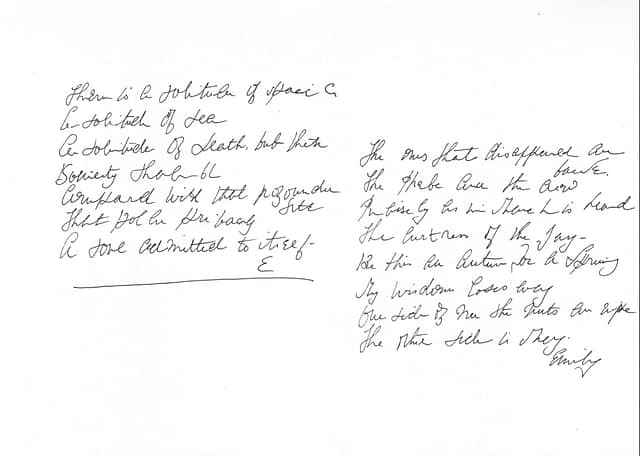 There is a solitude of space
A solitude of sea
A solitude of Death, but these
Society shall be
Compared with that profounder
site
That polar privacy
A soul admitted to itself-
E
The ones that disappeared are
back.
The Phebe and the Crow
Precisely as in March is heard
The curtness of the Jay-
Be this an Autumn, or a Spring
My wisdom loses way
One side of me the nuts are ripe
The other side is May.
Emily